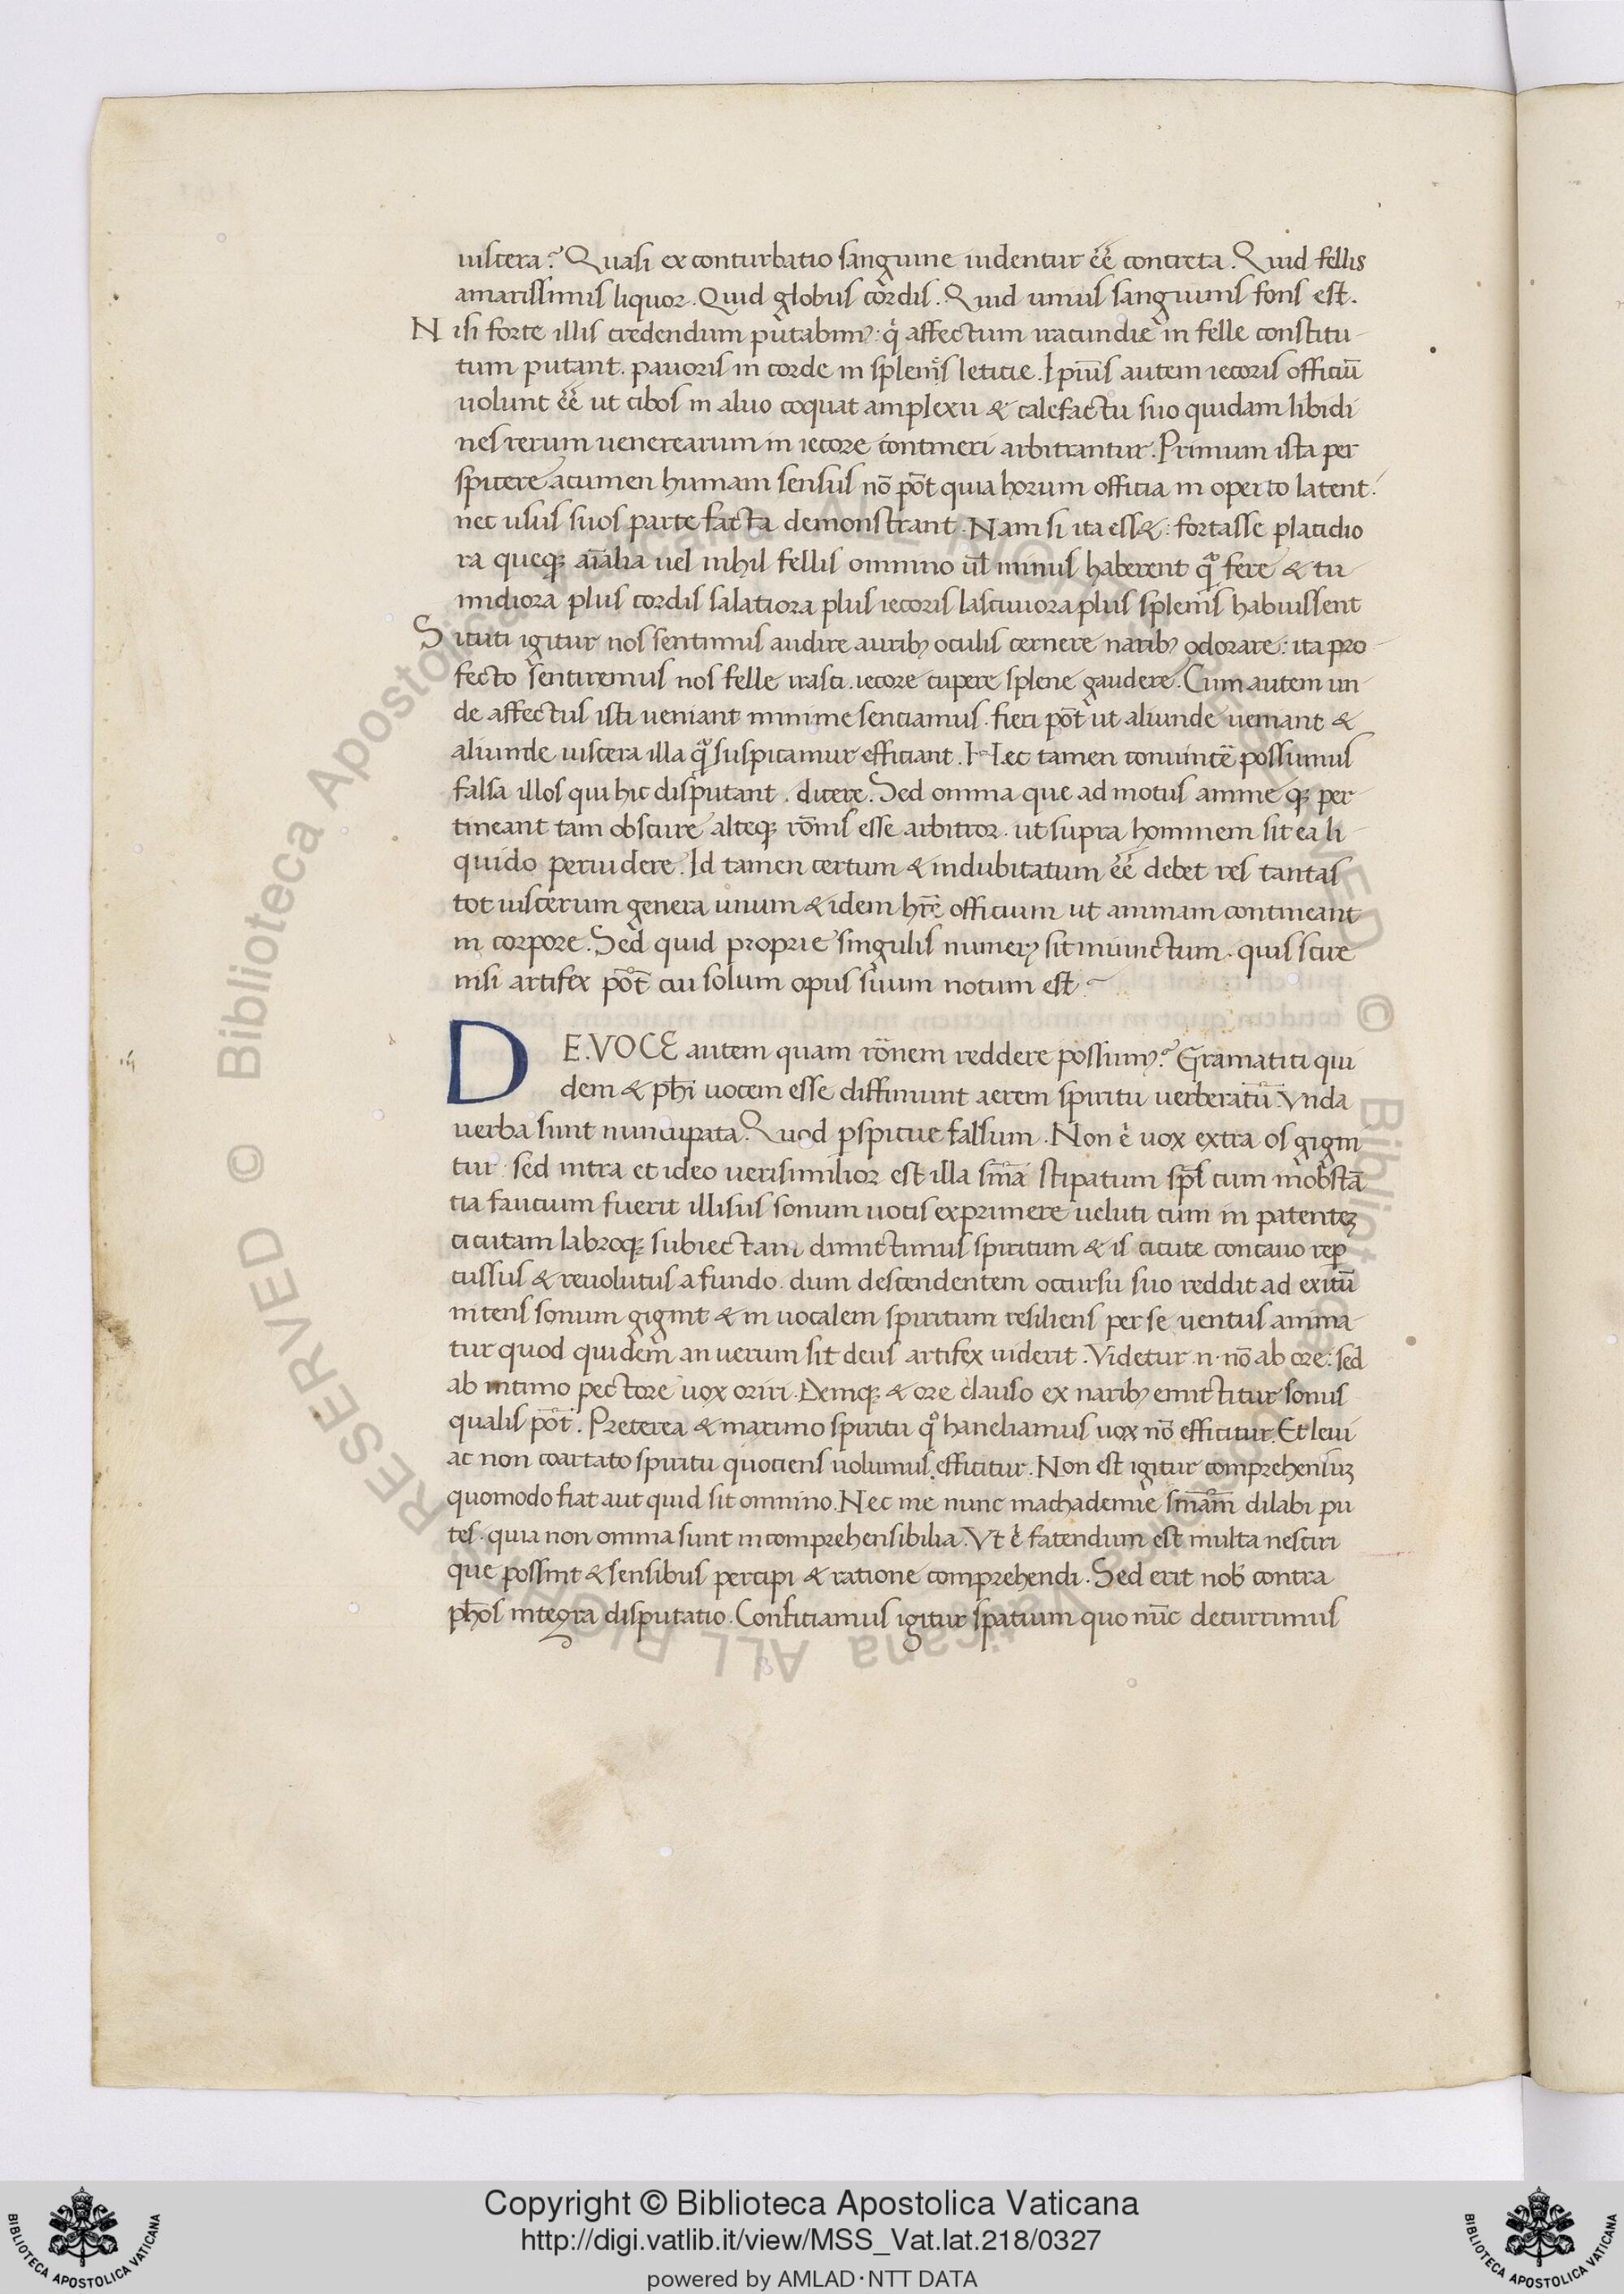 uiscera? Quasi ex conturbatio sanguine uidentur eē concreta. Quid fellis
amarissimus liquor. Quid globus cordis. Quid unius sanguinis fons est.
Nisi forte illis credendum putabimꝰ: qͥ affectum iracundie in felle constitu-
tum putant. pauoris in corde in splenis leticie. Ipius autem iecoris officiū
uolunt eē ut cibos in aluo coquat amplexu & calefactu suo quidam libidi
nes rerum uenerearum in iecore contineri arbitrantur. Primum ista per
spicere acumen humani sensus nō pōt quia horum officia in operto latent.
nec usus suos parte facta demonstrant. Nam si ita ess&: fortasse placidio
ra queqȝ aīalia uel nihil fellis omnino ul̄ minus haberent qͣ fere & tu
midiora plus cordis salatiora plus iecoris lasciuiora plus splenis habuissent
Sicuti igitur nos sentimus audire auribȝ oculis cernere naribȝ odorare: ita pro-
fecto sentiremus nos felle irasci. iecore cupere splene gaudere. Cum autem un-
de affectus isti ueniant minime senciamus. fieri pōt ut aliunde ueniant &
aliunde uiscera illa qͣ suspicamur efficiant. Hec tamen conuincē possumus
falsa illos qui hic disputant. dicere. Sed omnia que ad motus anime qȝ per-
tineant tam obscure alteqȝ rōnis esse arbitror. ut supra hominem sit ea li-
quido peruidere. Id tamen certum & indubitatum eē debet res tantas
tot uiscerum genera unum & idem hr̄e officium ut animam contineant
in corpore. Sed quid proprie singulis munerꝭ sit iniunctum. quis scire
nisi artifex pōt cui solum opus suum notum est.
DE. VOCE autem quam rōnem reddere possumꝰ? Gramatici qui
dem & phi uocem esse diffiniunt aerem spiritu uerberatū. Vnda
uerba sunt nuncupata. Quod pspicue falsum. Non ē uox extra os gigni
tur. sed intra et ideo uerisimilior est illa sn̄ia stipatum sps̄ cum inobstā
tia faucium fuerit illisus sonum uocis exprimere ueluti cum in patenteȝ
cicutam labroqȝ subiectam dimittimus spiritum & is cicute concauo rep
cussus & reuolutus a fundo. dum descendentem occursu suo reddit ad exitū
nitens sonum gignit & in uocalem spiritum resiliens per se uentus anima-
tur quod quidem an uerum sit deus artifex uiderit. Videtur .n. nō ab ore: sed
ab intimo pectore uox oriri. Deniqȝ & ore clauso ex naribȝ emittitur sonus
qualis pōt. Preterea & maximo spiritu qͦ haneliamus uox nō efficitur. Et leui
ac non coartato spiritu quociens uolumus efficitur. Non est igitur comprehensuȝ
quomodo fiat aut quid sit omnino. Nec me nunc machademie sn̄iam dilabi pu
tes. quia non omnia sunt incomprehensibilia. Vt ē fatendum est multa nesciri
que possint & sensibus percipi & ratione comprehendi. Sed erit nob contra
phos integra disputatio. Conficiamus igitur spatium quo nūc decurrimus
© Biblioteca Apostolica Vaticana ALL RIGHTS RESERVED
Copyright © Biblioteca Apostolica Vaticana
http://digi.vatlib.it/view/MSS_Vat.lat.218/0327
powered by AMLAD·NTT DATA
BIBLIOTECA APOSTOLICA VATICANA
BIBLIOTECA APOSTOLICA VATICANA